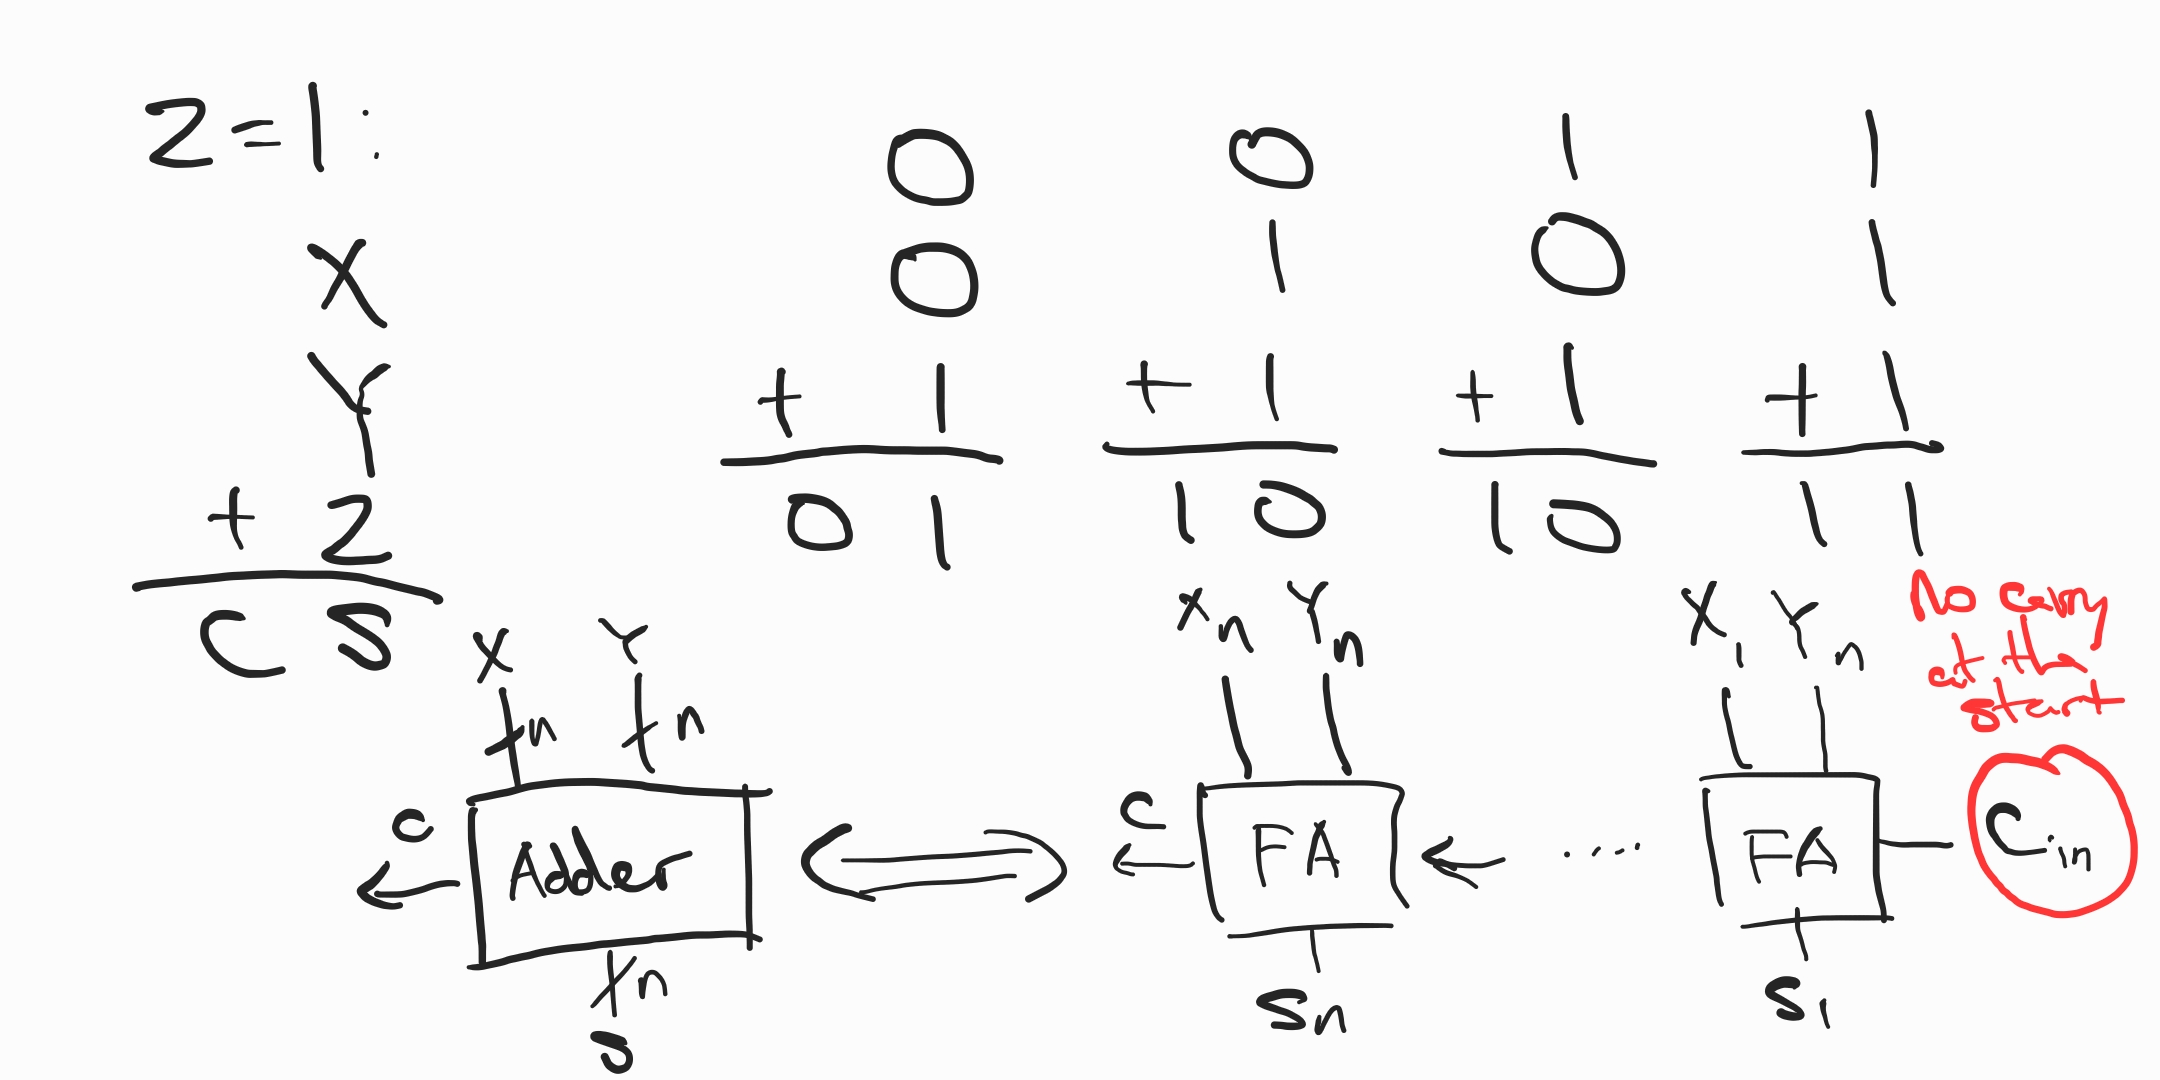 Z = 1 :
X
Y
+ Z
C S
0
0
+ 1
0 1
0
1
+ 1
1 0
1
0
+ 1
1 0
1
1
+ 1
1 1
X Y
n n
C
Adder
n
S
Xn Yn
C
FA
Sn
....
X1 Yn
FA
S1
No carry
at the
start
Cin